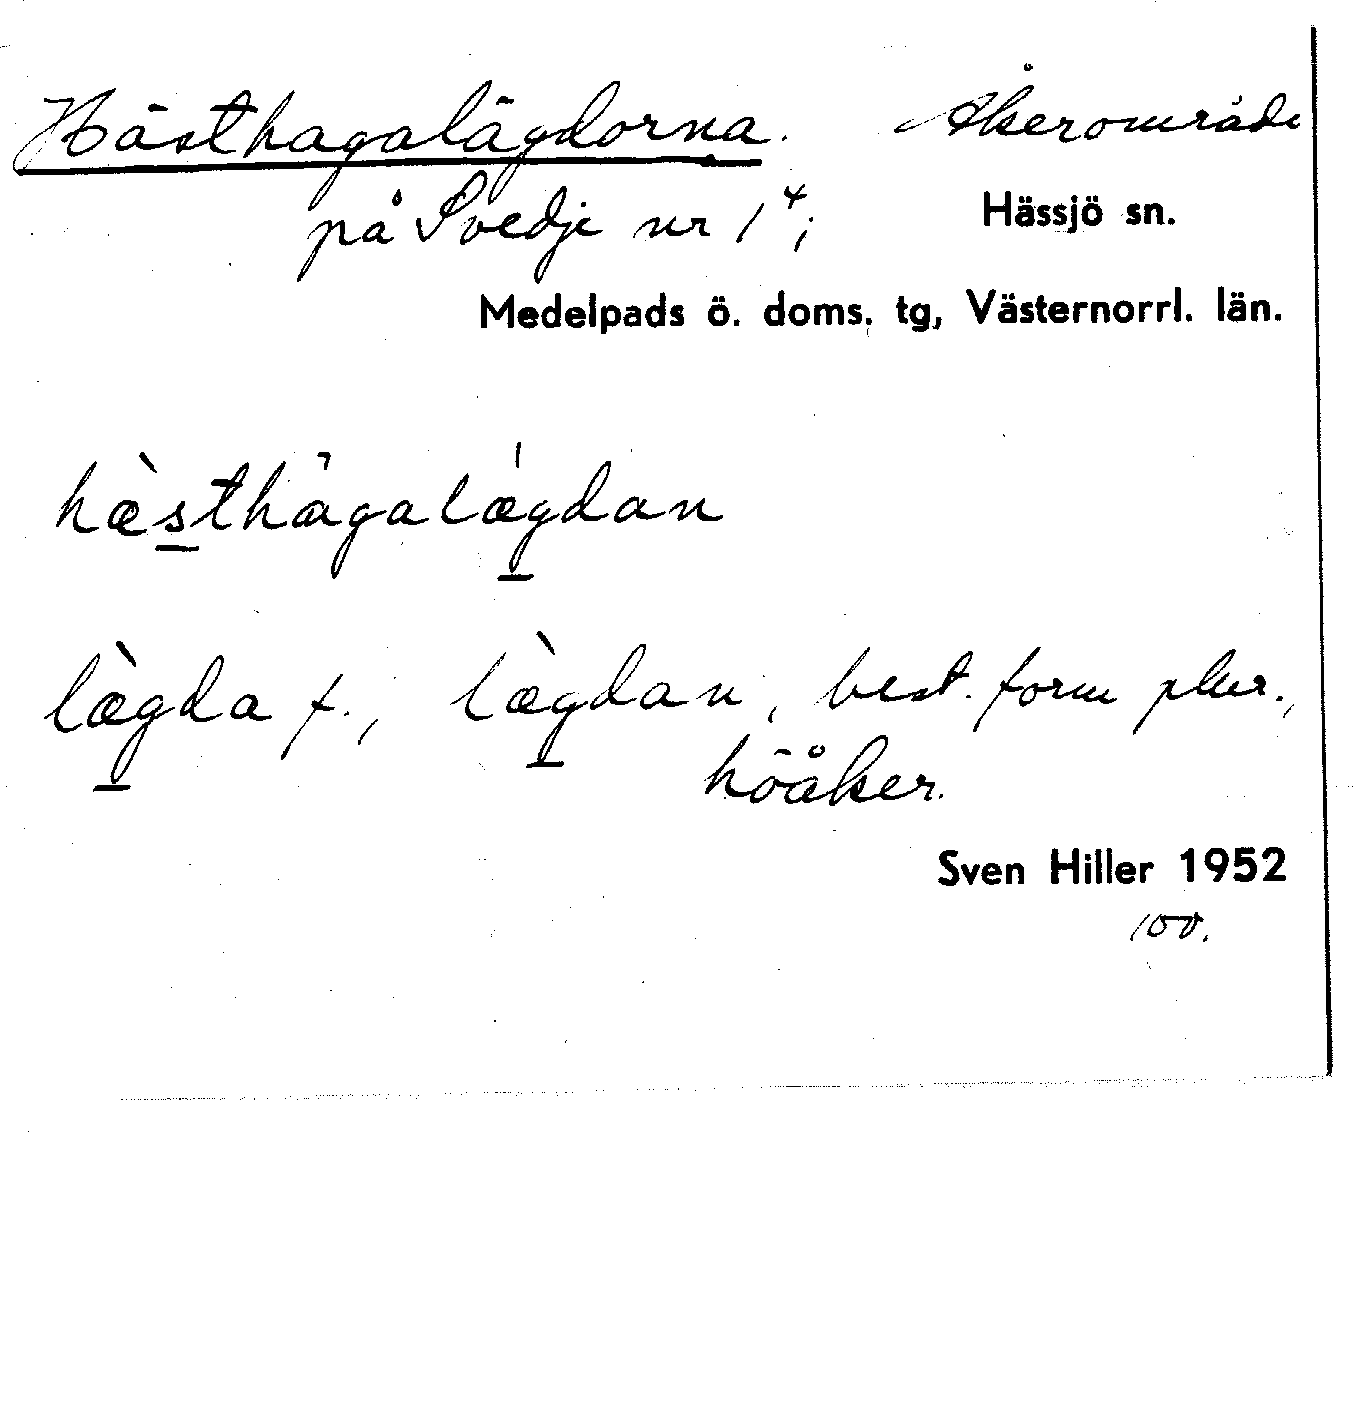 Hästhagalägdorna. Åkerområde
på Svedje nr 1⁴; Hässjö sn.
Medelpads ö. doms. tg, Västernorrl. län.
hæ̀sthagalægdan
læ̀gda f., læ̀gdan, best. form plur.,
höåker.
Sven Hiller 1952
100.